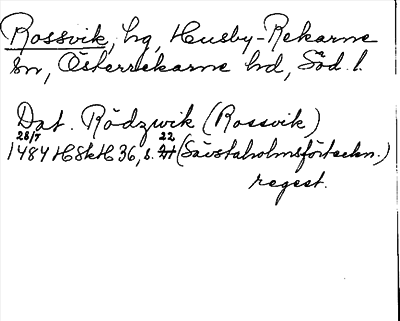 Rossvik, hg, Husby-Rekarne
sn, Österrekarne hd, Söd. l.
Dat. Rödzwik (Rossvik)
28/7 22
1484 HSkH 36, s. (Sävstaholmsförteckn.)
regest.